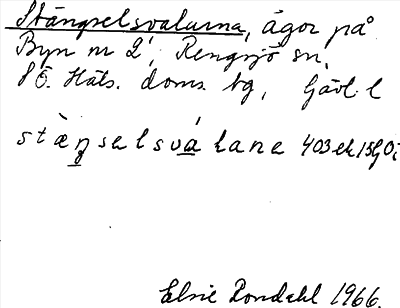 Stängselsvalarna, ägor på
Byn nr 2, Rengsjö sn,
SÖ. Häls. doms. tg, Gävl. l
stæ̀ŋselsválane 403 ek
Elsie Rondahl 1966.